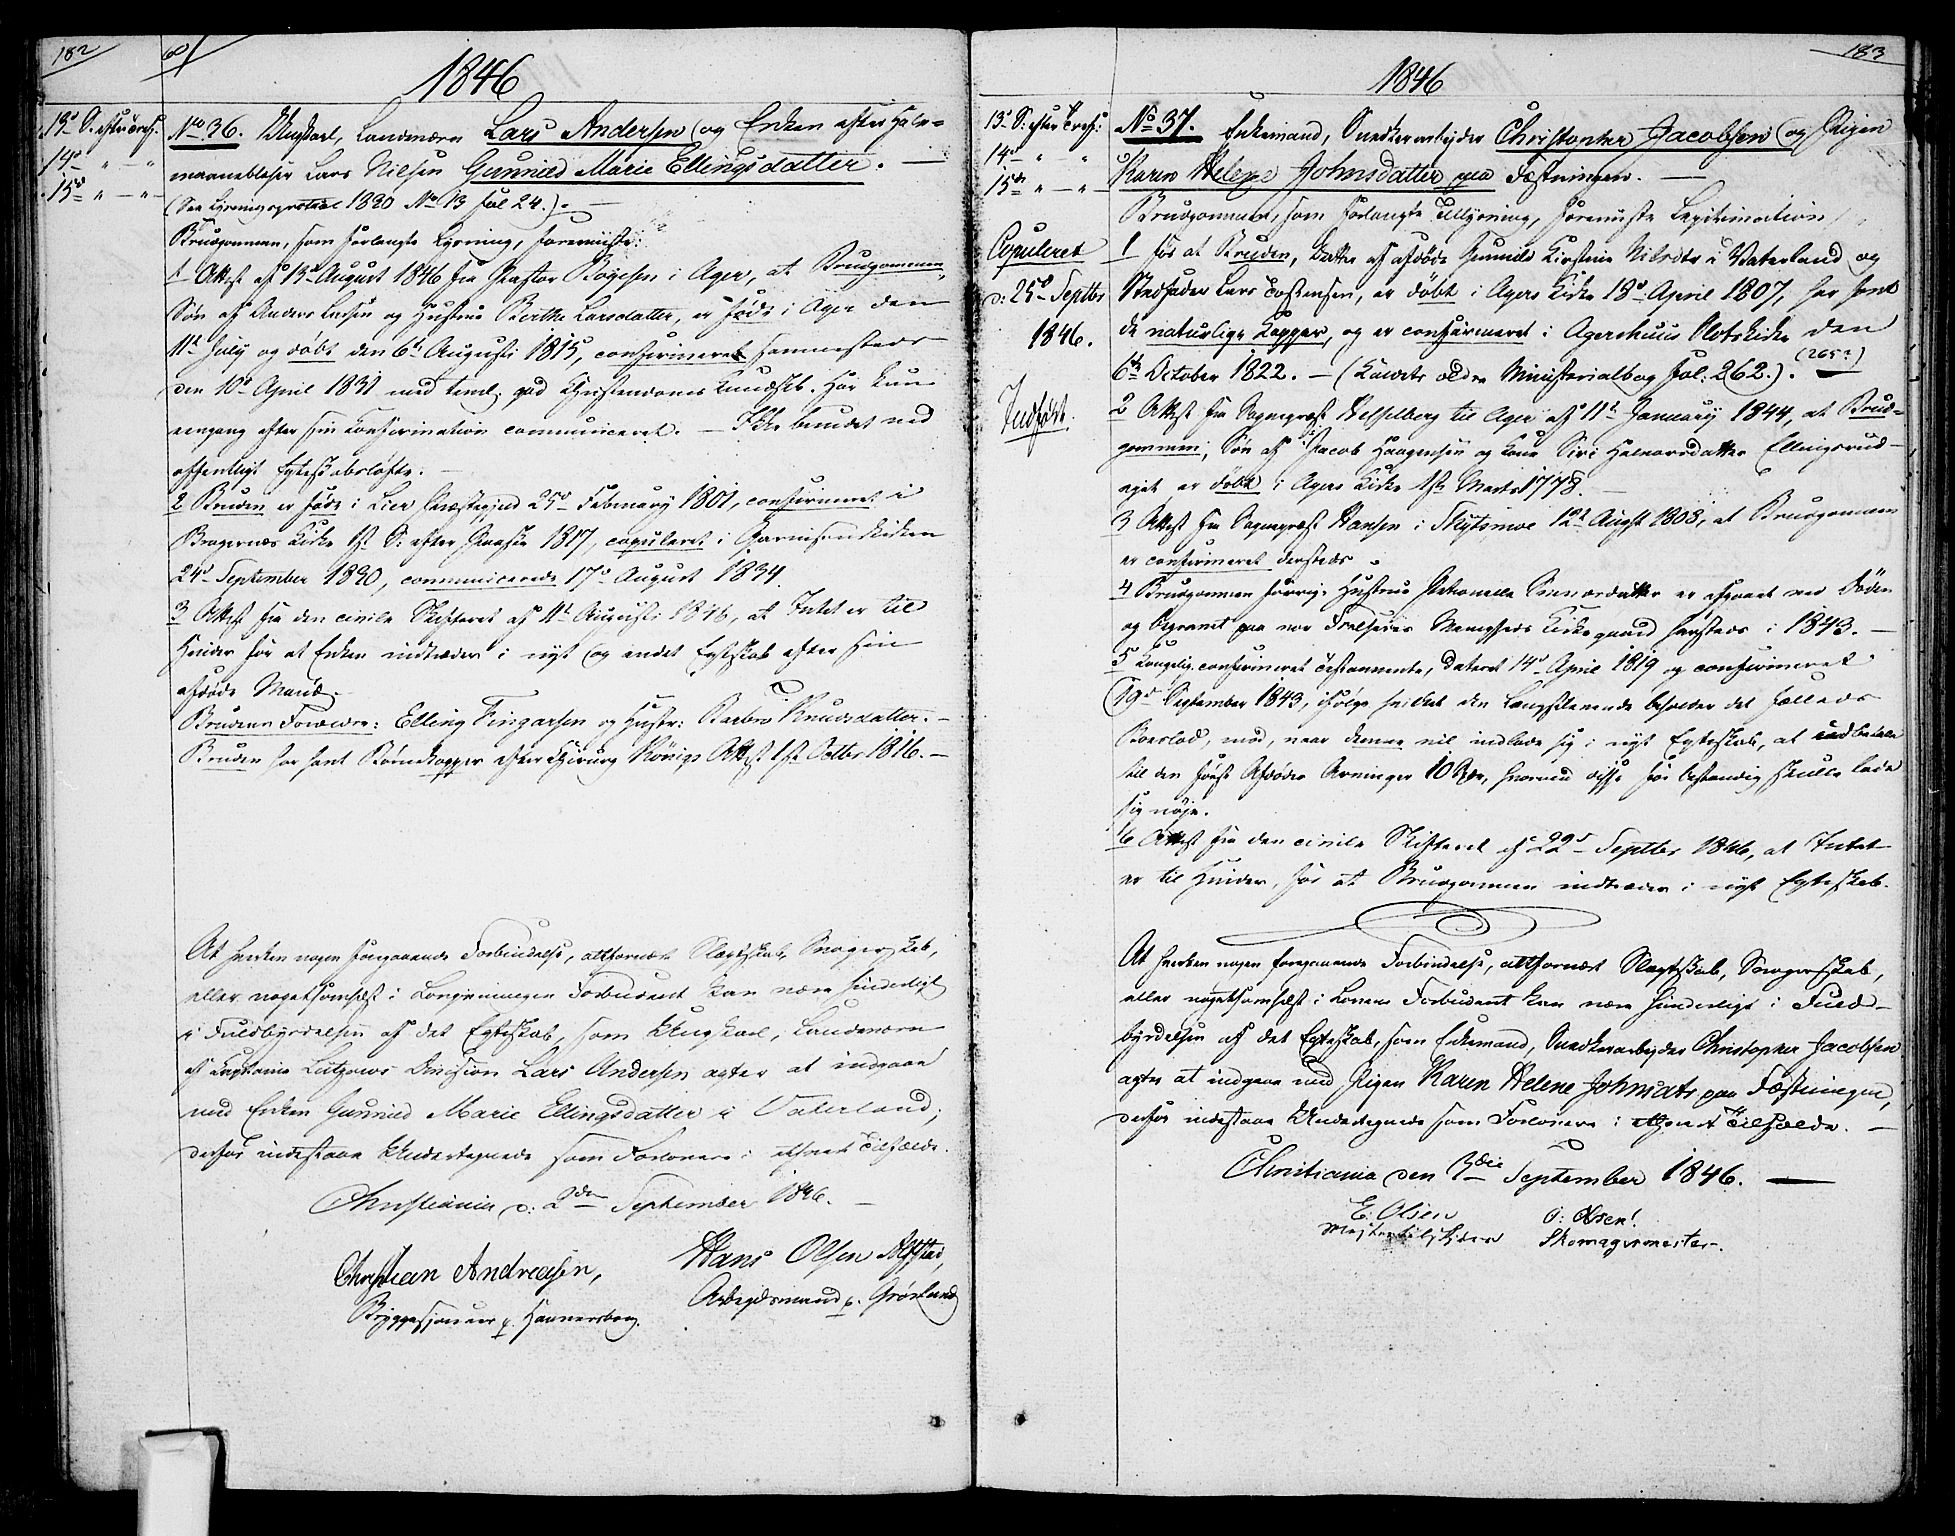 182
1846
13de S. efter Tref.
14de " — "
15de " — " —
No 36. Ungkarl, Landværn Lars Andersen og Enken efter Halv=
maaneblæser Lars Nilsen Gunnild Marie Ellingsdatter. —
(See Lysningsprotocol 1830 No 13 fol 24.). —
Brudgommen, som forlangte Lysning, foreviiste:
1 Attest af 13de August 1846 fra Pastor i Ager, at Brudgommen,
Søn af Anders Larsen og Hustrue Berthe Larsdatter, er fødd i Ager den
11te July og döbt den 6te Augusti 1815, confirmeret sammesteds
den 10de April 1831 med teml. god Christendoms Kundskb. Har kun
eengang efter sin Confirmation communiceret. — Ikke bundet ved
offentligt Egteskabsløfte. —
2 Bruden er fødd i Lier Præstegjeld 25de February 1801, confirmeret i
Bragernæs Kirke 1ste S. efter Paaske 1817, copuleret i Garnisonskirken
24de September 1830, communicerede 17de August 1834.
3 Attest fra den civile Skifteret af 4de Augusti 1846, at Intet er til
Hinder for at Enken indtræder i nyt og andet Egteskab efter sin
afdöde Mand.
Brudens Forældre: Elling Fingarsen og Hustr: Barbro Knudsdatter. —
Bruden har havt Børnekopper efter Chirurg Königs Attest 1ste Octbr 1816. —
At hverken nogen foregaaende Forbindelse, altfornær Slægtskab, Svogerskab,
eller nogetsomhelst i Lovgivningen Forbudent kan være hinderligt
i Fuldbyrdelsen af det Egteskab, som Ungkarl, Landværn
af Capitain Lützows Division Lars Andersen agter at indgaae
med Enken Gunnild Marie Ellingsdatter i Vaterland,
derfor indestaae Undertegnede som Forlovere i ethvert Tilfælde.
Christiania d: 2den September 1846. —
Christian Andreasen,
Bryggesjouer p. Hammersborg.
Hans Olsen
Arbeidsmand p. Grønland
183
1846
13de S: efter Tref:
14de " "
15de " — " —
Copuleret
d: 25de Septbr
1846.
Indført.
No 37. Enkemand, Snedkerarbeider Christopher Jacobsen og Pigen
Karen Helene Johnsdatter paa Fæstningen. —
Brudgommen, som forlangte Tillysning, foreviiste Legitimation
1 for at Bruden, Datter af afdöde Gunnild Kirstine Nilsdtr i Vaterland og
Stedfader Lars Torstensen, er döbt i Agers Kirke 18de April 1807, har havt
de naturlige Kopper, og er confirmeret i Agershuus Slotskirke den
6te October 1822. — (Cadets ældre Ministerialbog fol: 262.). (265?)
2 Attest fra Sognepræst Hesselberg til Ager af 11te January 1844, at Brud=
gommen, Søn af Jacob Haagensen og Kone Siri Halvorsdatter Ellingsrud=
eget er döbt i Agers Kirke 1ste Marts 1778. —
3 Attest fra Sognepræst Hansen i Skytsmoe 12te Augst 1808, at Brudgommen
er confirmeret dersteds.
4 Brudgommens forrige Hustrue Petronelle Simonsdatter er afgaaet ved Döden
og begravet paa vor Frelsers Menigheds Kirkegaard hersteds i 1843. —
5 Kongelig confirmeret Testamente, dateret 14de April 1819 og confirmeret
19de September 1843, ifølge hvilket den Længstlevende beholder det fælleds
Boeslod, mod, naar denne vil indlade sig i nyt Egteskab, at udbetale
til den först Afdödes Arvinger 10 Rdr, hvormed disse for bestandig skulle lade
sig nøje.
6 Attest fra den civile Skifteret af 22de Septbr 1846, at Intet
er til Hinder, for at Brudgommen indtræder i nyt Egteskab.
At hverken nogen foregaaende Forbindelse, altfornært Slegtskab, Svogerskab,
eller nogetsomhelst i Lovene Forbudent kan være hinderligt i Fuld=
byrdelsen af det Egteskab, som Enkemand, Snedkerarbeider Christopher Jacobsen
agter at indgaae med Pigen Karen Helene Johnsdatr paa Fæstningen,
derfor indestaae Undertegnede som Forlovere i ethvert Tilfælde. —
Christiania den 7die September 1846. —
E: Olsen
P: Olsen.
Skomagermester.